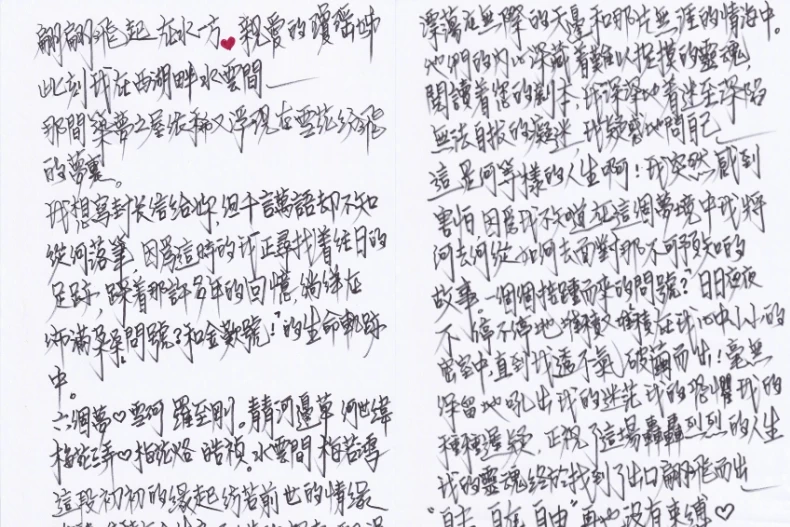 翩翩飛起 在水一方 親愛的瓊瑤姊
此刻我在西湖畔水雲間——
那間築夢之屋依稀又浮現在雪花紛飛
的夢裏。
我想寫封長信給妳,但千言萬語却不知
從何落筆,因為這時的我正尋找着往日的
足跡,踩着那許多年的回憶,徜徉在
佈滿朵朵問號?和金歎號!的生命軌跡
中。
六個夢♡雪珂 羅至剛。青青河邊草 河世緯
梅花三弄♡梅花烙 皓禎。水雲間 梅若鴻
這段初初的緣起彷若前世的情緣
漂蕩在無際的天臺和那片無涯的情海中。
他們的內心深藏着難以捉摸的靈魂,
閱讀着您的劇本,我深深地着迷至深陷
無法自拔的癡迷 我疑惑地問自己——
這是何等樣的人生啊!我突然感到
害怕,因為我不知道在這個夢境中我將
何去何從 如何去面對那不可預知的
故事。一個個接踵而來的問號?日日夜夜
不停不停地堆積又堆積在我心中小小的
密室中,直到我透不氣,破繭而出!毫無
保留地吼出我的迷茫 我的恐懼 我的
種種疑,正視了這場轟轟烈烈的人生
我的靈魂終於找到了出口翩飛而出
“自由,自在,自由”再也沒有束縛♡